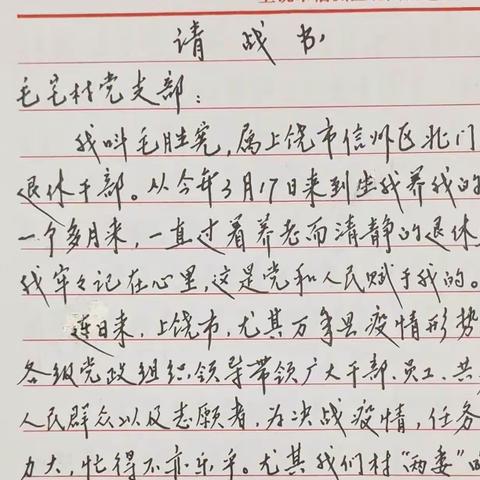 请战书
毛宅村党支部:
我叫毛胜宪,属上饶市信州区北门
退休干部。从今年3月17日来到生我养我的
一个多月来,一直过着养老而清静的退休
我牢々记在心里,这是党和人民赋于我的。
连日来,上饶市,尤其万年县疫情形势
各级党政组织,领导带领广大干部、员工、共
人民群众以及志愿者,为决战疫情,任务
力大,忙得不亦乐乎。尤其我们村"两委"